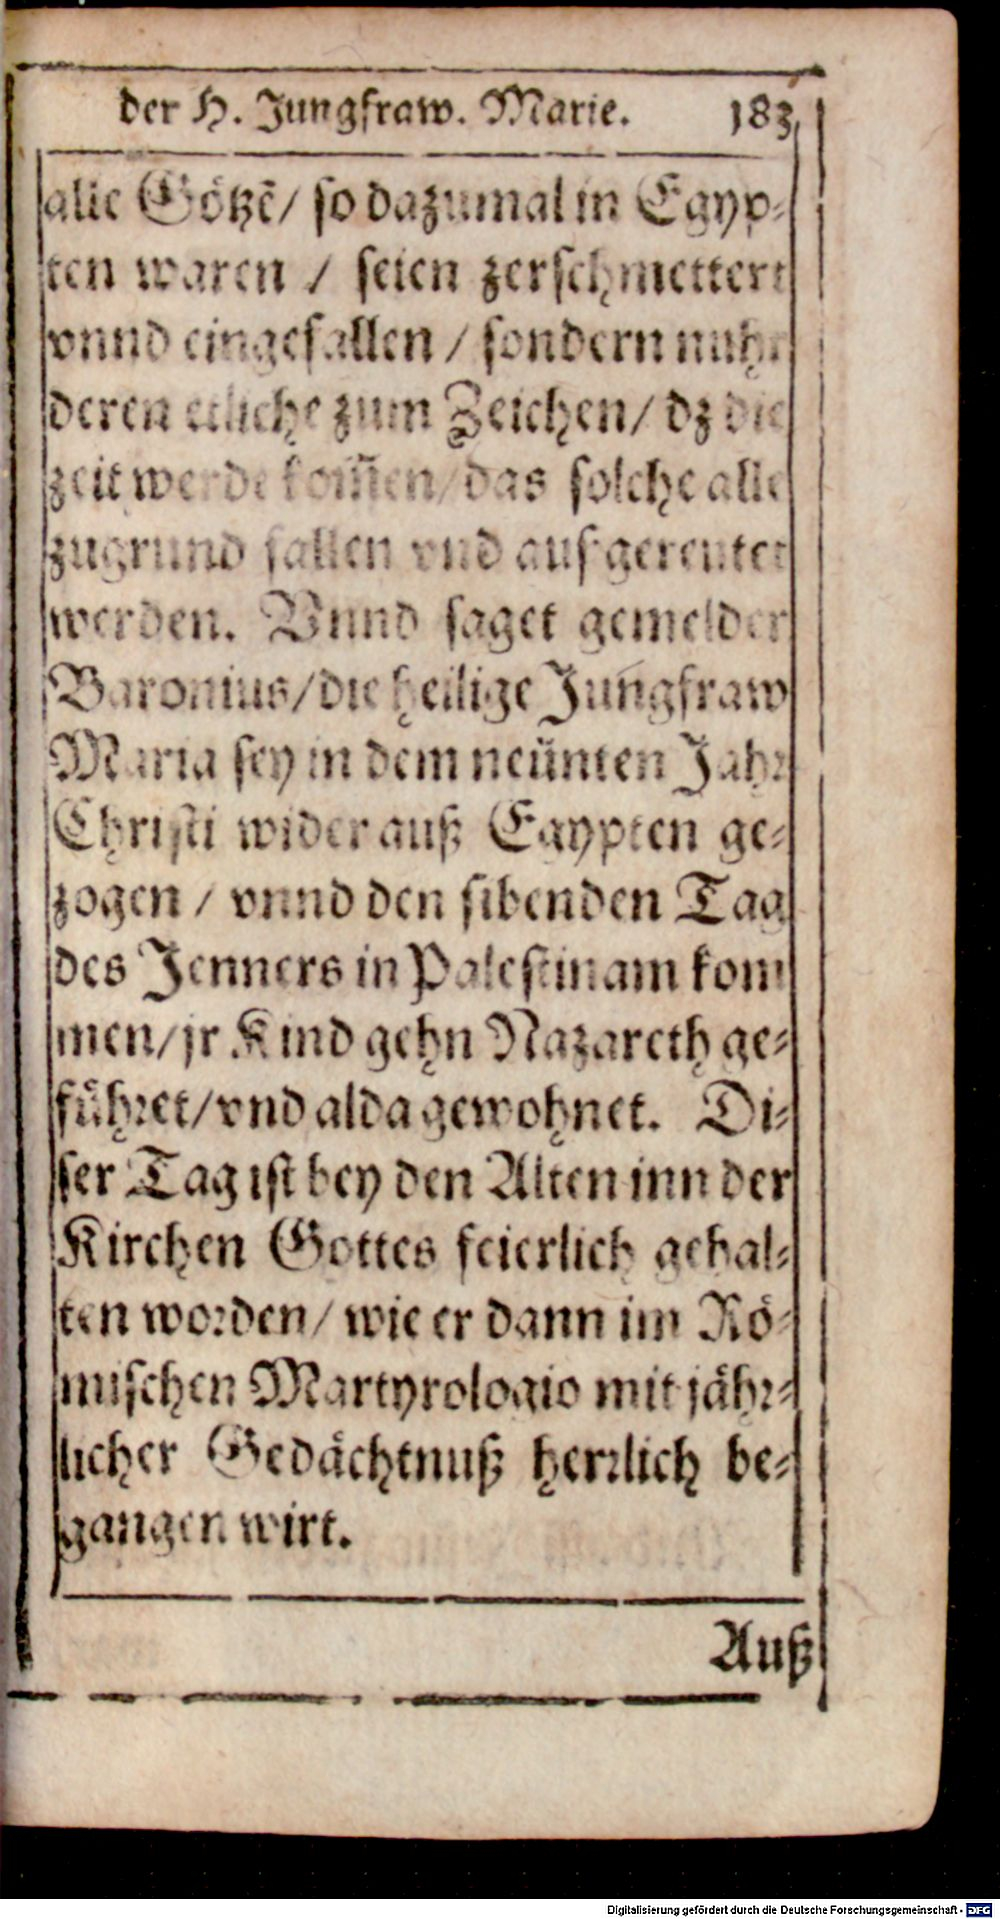 der H. Jungfraw. Marie. 183
alle Götzē/ so dazumal in Egyp-
ten waren / seien zerschmettert
vnnd eingefallen / sondern nuhr
deren etliche zum Zeichen/ dz die
zeit werde kom̄en/das solche alle
zugrund fallen vnd ausgereutet
werden. Vnnd saget gemelder
Baronius/die heilige Jungfraw
Maria sey in dem neünten Jahr
Christi wider auß Egypten ge-
zogen / vnnd den sibenden Tag
des Jenners in Palestinam kom
men/jr Kind gehn Nazareth ge-
führet/vnd alda gewohnet. Di-
ser Tag ist bey den Alten inn der
Kirchen Gottes feierlich gehal-
ten worden/ wie er dann im Rö-
mischen Martyrologio mit jähr-
licher Gedächtnuß herrlich be-
gangen wirt.
Auß
Digitalisierung gefördert durch die Deutsche Forschungsgemeinschaft - DFG